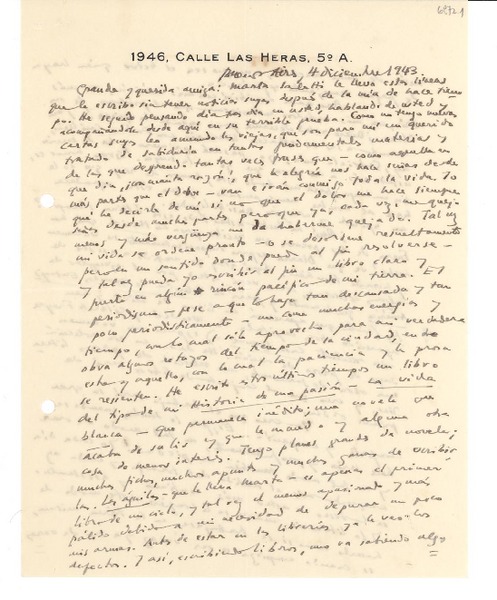 68721
1946, CALLE LAS HERAS, 5º A.
Buenos Aires, 4 diciembre 1943.
Grande y querida amiga: Marta Salotti le lleva estas líneas
que le escribo sin tener noticias suyas después de la mía de hace tiem-
po. He seguido pensando día tras día en usted, hablando de usted y
acompañándole desde aquí en su terrible prueba. Como no tengo nuevas
cartas suyas leo a menudo las viejas, que son para mí un querido
tratado de sabiduría en tantas fundamentales materias y
de las que desprendo tantas veces frases que — como aquella en
que dice, ¡con cuánta razón!, que la alegría nos hace señas desde
más parte que el dolor — van e irán conmigo toda la vida. Yo
qué he decirle de mí si no que el dolor me hace siempre
señas desde mucha parte pero que ya, cada vez, me quejo
menos y más vergüenza me da haberme quejado. Tal vez
mi vida se ordene pronto — o se desordene resueltamente
pero en un sentido donde pueda al fin resolverse —
y tal vez pueda yo escribir al fin un libro claro y
fuerte en algún rincón pacífico de mi tierra. El
periodismo — pese a que lo hago tan descansada y tan
poco periodísticamente — me come muchas energías y
tiempo, con lo cual sólo aprovecho para mi verdadera
obra algunos retazos del tiempo de la ciudad, entre
esto y aquello, con lo cual la paciencia y la prosa
se resienten. He escrito estos últimos tiempos un libro
del tipo de mi Historia de una pasión — La vida
blanca — que permanece inédito; una novela que
acaba de salir y que le mando y alguna otra
cosa de menos interés. Tengo planes grandes de novela;
muchas fichas, muchos apuntes y muchas ganas de escribir-
las. Las águilas — que le lleva Marta — es apenas el primer
libro de un ciclo, y tal vez el menos apasionado y más
pálido debido a mi necesidad de depurar un poco
mis armas. Antes de estar en las librerías ya le veo los
defectos. Y así, escribiendo libros, uno va sabiendo algo